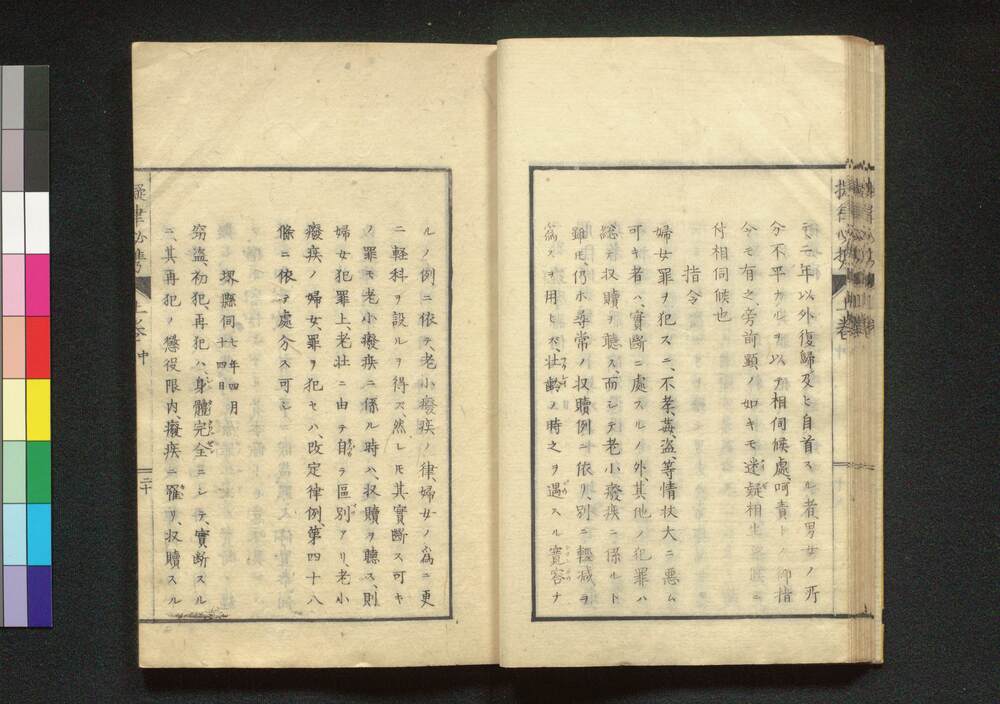 テ二年以外復歸及ヒ自首スル者男女ノ所
分不平カルヲ以テ相伺候處呵責トノ御指
令モ有之旁前顯ノ如キモ迷疑相生候條ニ
付相伺候也
指令
婦女罪ヲ犯スニ、不孝、姦、盗、等情状大ニ惡ム
可キ者ハ、實斷ニ處スルノ外、其他ノ犯罪ハ
總テ収贖ヲ聽ス、而シテ老小癈疾ニ係ルト
雖モ、仍ホ尋常ノ収贖例ニ依リ、別ニ輕減ヲ
爲スヲ用ヒス、壮齡ノ時之ヲ遇スル寛容ナ
ルノ例ニ依テ、老小癈疾ノ律、婦女ノ爲ニ更
ニ輕科ヲ設ルヲ得ス、然レ圧其實斷ス可キ
ノ罪モ老小癈疾ニ係ル時ハ、収贖ヲ聽ス、則
婦女犯罪上、老壮ニ由テ自ラ區別アリ、老小
癈疾ノ婦女、罪ヲ犯セハ、改定律例、第四十八
條ニ依テ處分ス可シ
堺縣伺 七年四月十四日
窃盗、初犯、再犯ハ、身體完全ニシテ、實斷スル
ニ、其再犯ノ懲役限内、癈疾ニ罹リ、収贖スル
擬律必携
上巻 中
二十